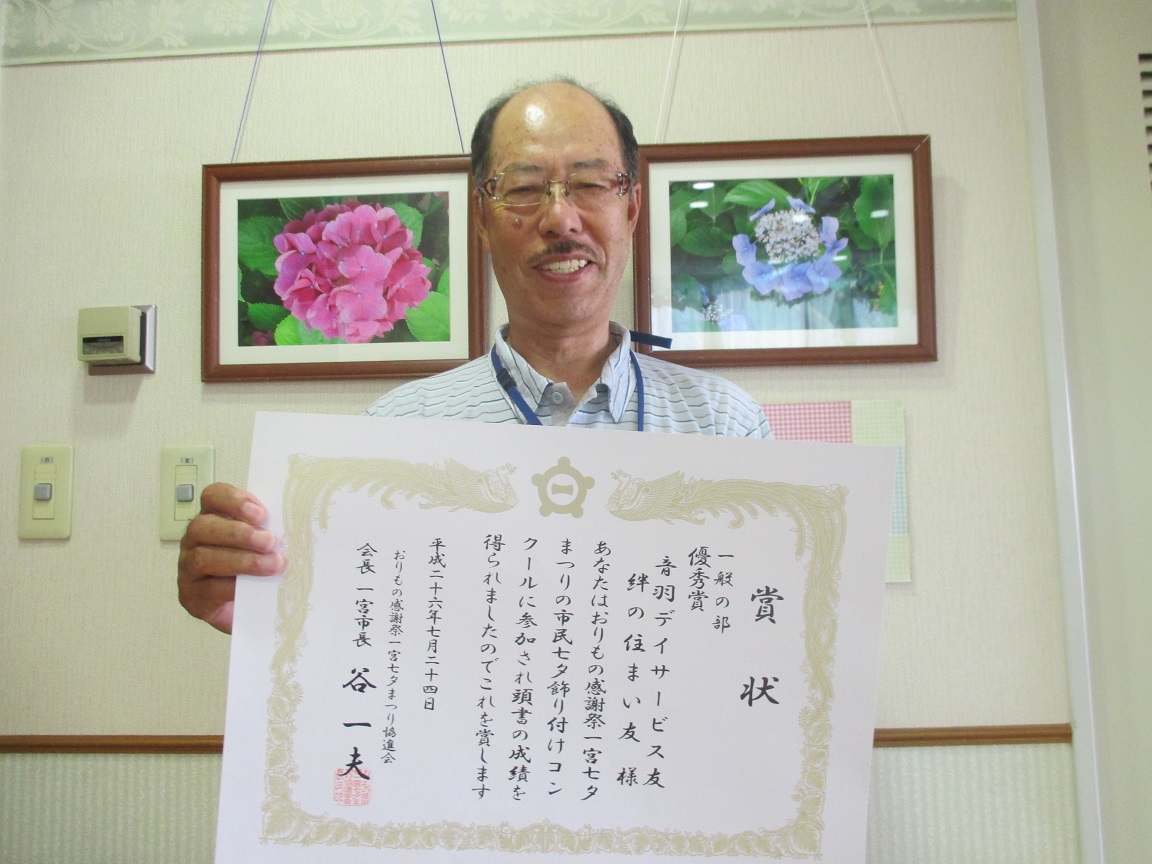 賞状
一般の部
優秀賞
音羽デイサービス友
絆の住まい友 様
あなたはおりもの感謝祭一宮七夕
まつりの市民七夕飾り付けコン
クールに参加され頭書の成績を
得られましたのでこれを賞します
平成二十六年七月二十四日
おりもの感謝祭一宮七夕まつり協進会
会長 一宮市長 谷一夫